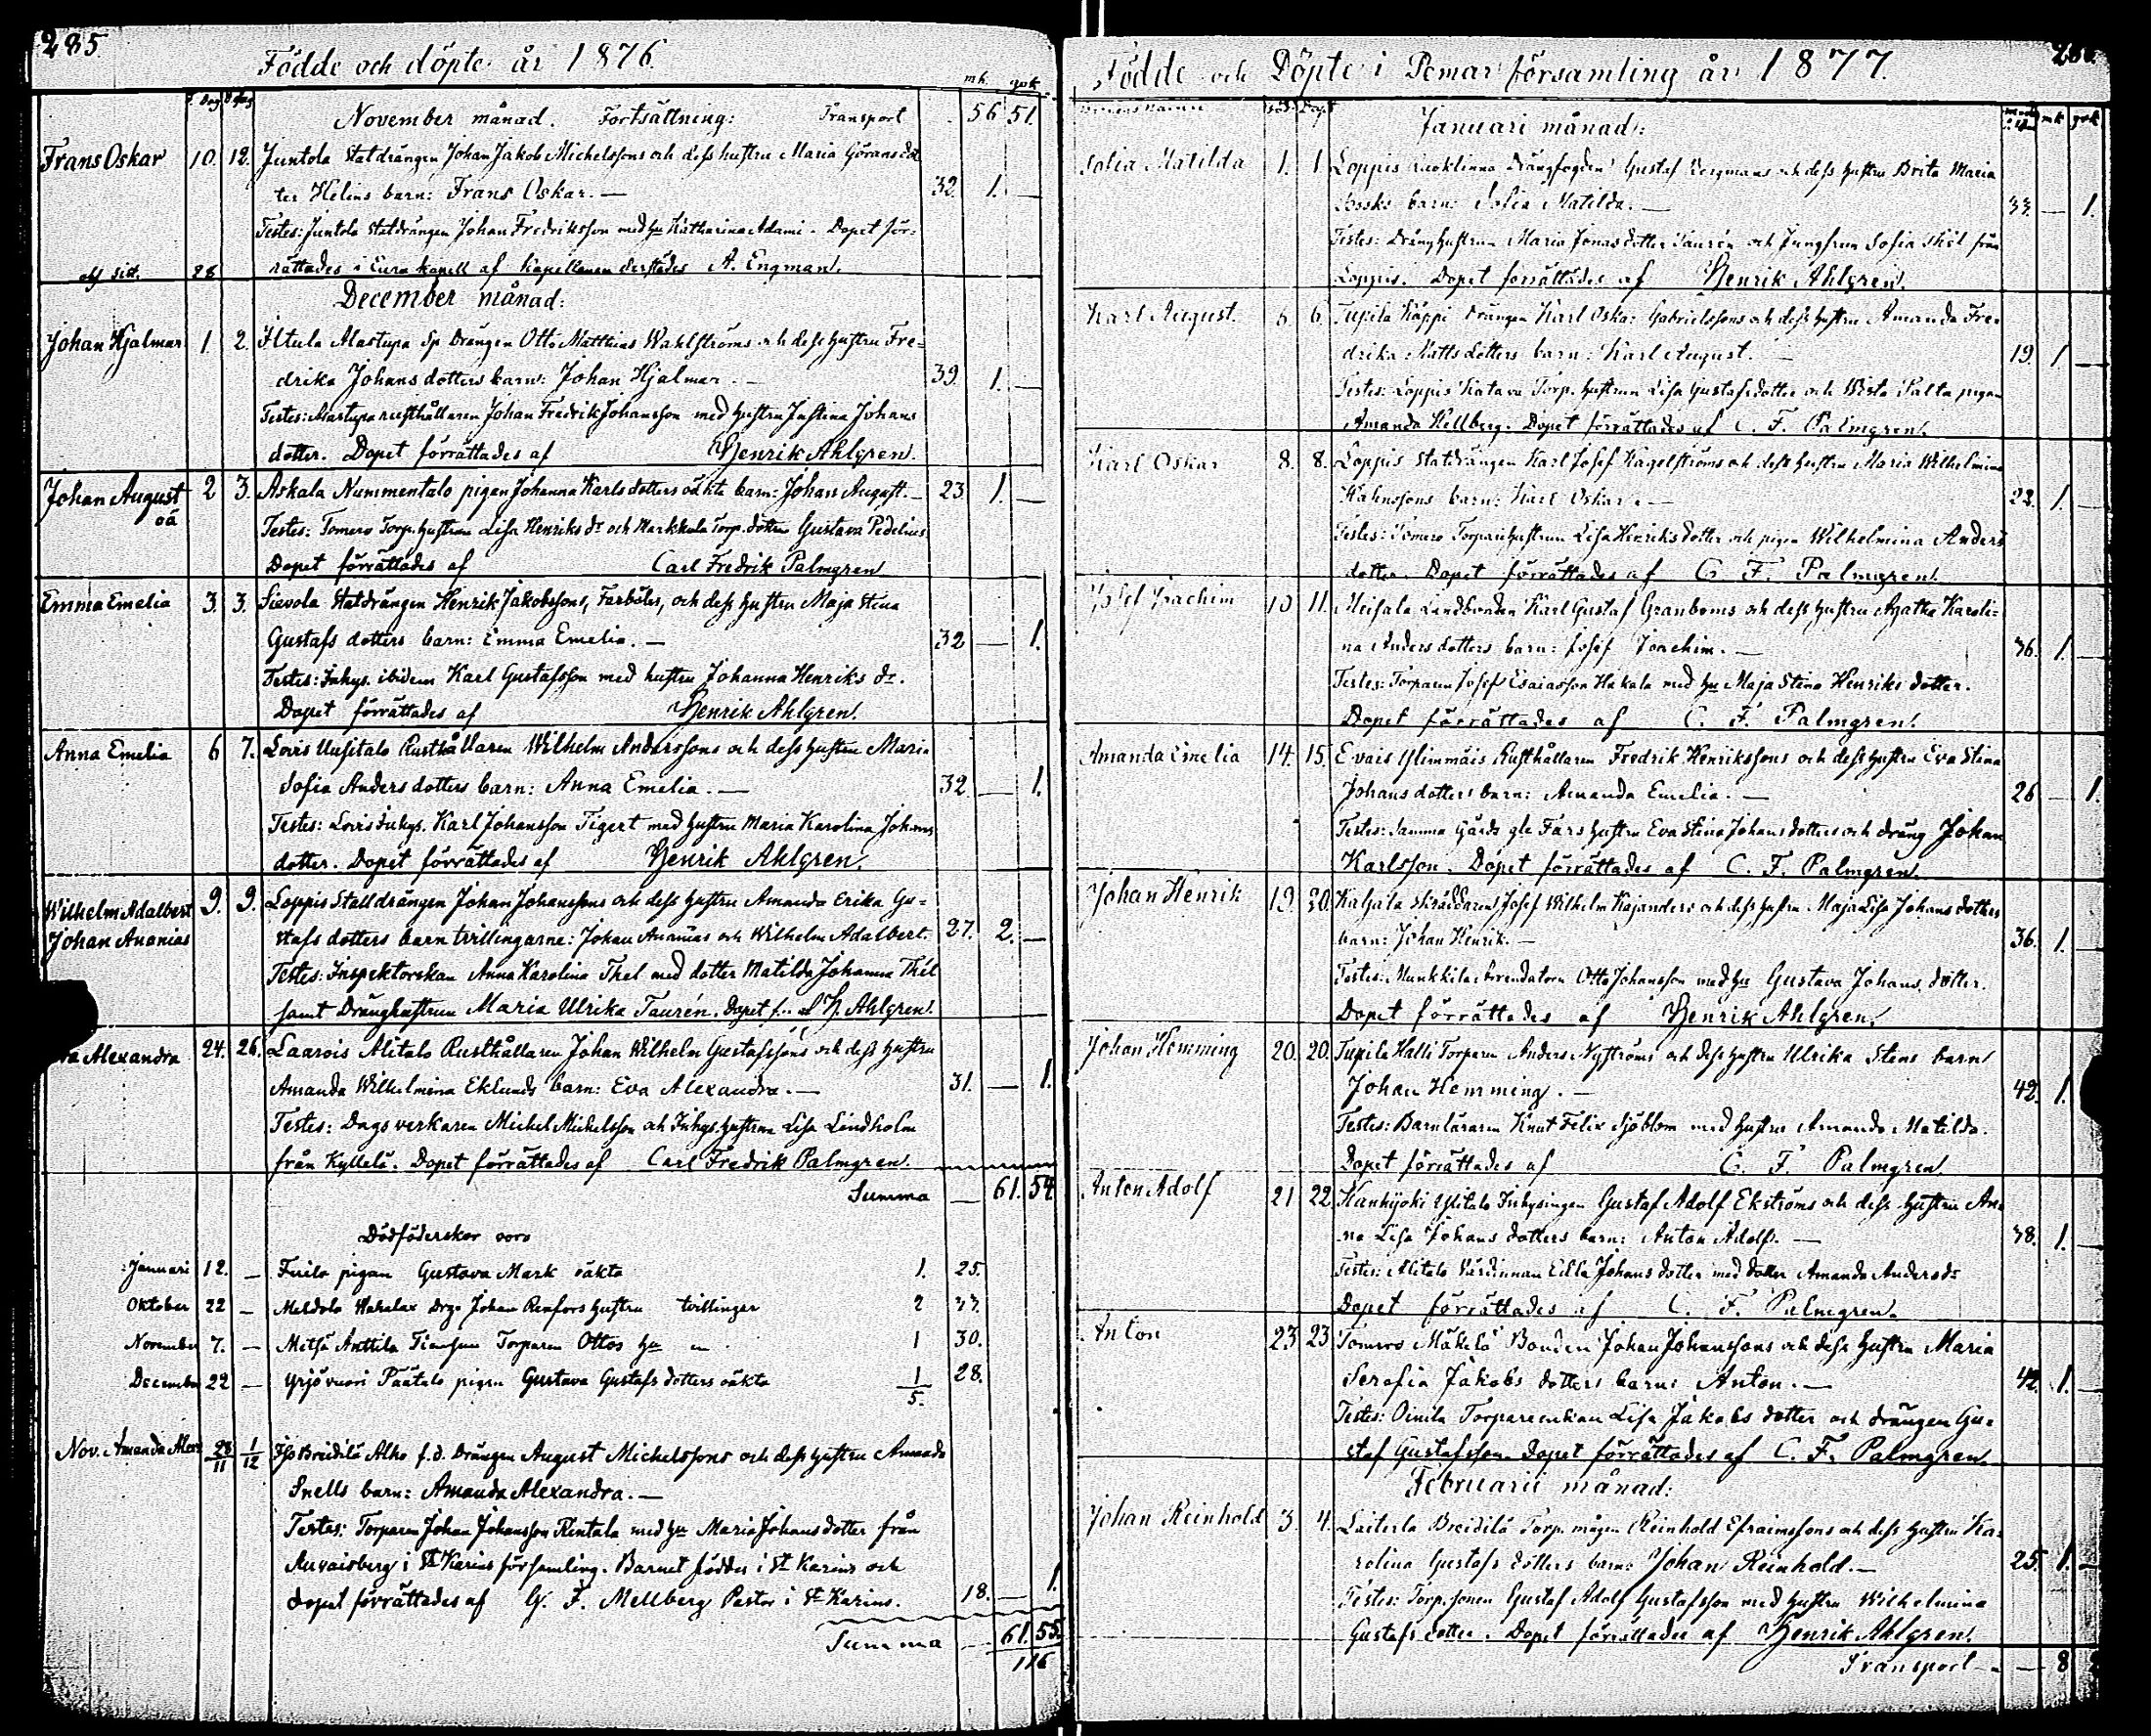 285.
Födde och döpte år 1876.
mk. qvk.
November månad. Fortsättning: Transport 56 51.
Frans Oskar 10. 12. Juntola Statdrängen Johan Jakob Michelssons och dess hustru Maria Görans dot
ter Helins barn: Frans Oskar. — 32. 1. —
Testes: Juntola Statdrängen Johan Fredriksson med hu Katharina Adami. Dopet för:
rättades i Eura kapell af Kapellanen derstädes A. Engman.
28
December månad:
Johan Hjalmar 1. 2. Iltula Alastupa Sp Drängen Otto Matthias Wahlströms och dess hustru Fre=
drika Johans dotters barn: Johan Hjalmar. — 39. 1. —
Testes: Alastupa rusthållaren Johan Fredrik Johansson med hustru Justina Johans
dotter. Dopet förrättades af Henrik Ahlgren.
Johan August 2 3. Askala Nummentalo pigan Johanna Karls dotters oäkta barn: Johan August. — 23. 1. —
oä
Testes: Tomero Torp. hustrun Lisa Henriks dr och Markkula Torp. dottren Gustava Pedelius
Dopet förrättades af Carl Fredrik Palmgren
Emma Emelia 3. 3. Sievola Statdrängen Henrik Jakobssons, Farböles, och dess hustru Maja Stina
Gustafs dotters barn: Emma Emelia. — 32 — 1.
Testes: Inhys. ibidem Karl Gustafsson med hustru Johanna Henriks dr.
Dopet förrättades af Henrik Ahlgren.
Anna Emelia 6 7. Loris Uusitalo Rusthållaren Wilhelm Anderssons och dess hustru Maria
Sofia Anders dotters barn: Anna Emelia. — 32. — 1.
Testes: Loris Inhys. Karl Johansson Tigert med hustru Maria Karolina Johans
dotter. Dopet förrättades af Henrik Ahlgren.
Wilhelm Adalbert 9. 9. Loppis Stalldrängen Johan Johanssons och dess hustru Amanda Erika Gu=
Johan Ananias stafs dotters barn tvillingarne: Johan Ananias och Wilhelm Adalbert. 27. 2. —
Testes: Inspektorskan Anna Karolina Thel med dotter Matilda Johanna Thel
samt Dränghustrun Maria Ulrika Taurén. Dopet f.. af H. Ahlgren.
Alexandra 24. 26. Laarois Alitalo Rusthållaren Johan Wilhelm Gustafssons och dess hustru
Amanda Wilhelmina Eklunds barn: Eva Alexandra. — 31. — 1.
Testes: Dagsverkaren Michel Michelsson och Inhys. hustrun Lisa Lindholm
från Kyllelä. Dopet förrättades af Carl Fredrik Palmgren.
Summa — 61. 54
Dödföderskor voro
Januari 12. — pigan Gustava Mark oäkta 1. 25.
Oktober 22 — Meldola Drg. Johan Renfors hustru tvillingar 2 33.
November 7. — Metsä Anttila Torparen Ottos hu 1 30.
December 22 — Yrjövuori Päätalo pigan Gustava Gustafs dotters oäkta 1 28.
5.
Nov. Amanda Alex 28/11 1/12 Breidilä Alho f.d. Drängen August Michelssons och dess hustru Amanda
Snells barn: Amanda Alexandra. —
Testes: Torparen Johan Johansson Rentala med hu Maria Johans dotter från
Auvaisberg i St Karins församling. Barnet föddes i St Karins och
dopet förrättades af G. F. Mellberg Pastor i St Karins. 18. — 1.
Summa — 61. 55.
116
Födde och Döpte i Pemar församling år 1877.
Januari månad:
Sofia Matilda 1. 1 Loppis Drängfogden Gustaf Bergmans och dess hustru Brita Maria
barn: Sofia Matilda. — 33. — 1.
Testes: Dränghustrun Maria Jonas dotter Taurén och Jungfrun Sofia från
Loppis. Dopet förrättades af Henrik Ahlgren.
Karl August. 6. 6. Tupila Käppi Drängen Karl Oskar Gabrielssons och dess hustru Amanda Fre=
drika Matts dotters barn: Karl August. — 19. 1. —
Testes: Loppis Katava Torp. hustrun Lisa Gustafs dotter och Wista Palta pigan
Amanda Hellberg. Dopet förrättades af C. F. Palmgren.
Karl Oskar 8. 8. Loppis Statdrängen Karl Josef Hagelströms och dess hustru Maria Wilhelmina
barn: Karl Oskar. — 22. 1. —
Testes: Tomero Torparehustrun Lisa Henriks dotter och pigan Wilhelmina Anders
dotter. Dopet förrättades af C. F. Palmgren.
Josef Joachim 10 11. Meisala Landbonden Karl Gustaf Granboms och dess hustru Agatha Karoli=
na Anders dotters barn: Josef Joachim. — 36. 1. —
Testes: Torparen Josef Esaiasson Hakala med hu Maja Stina Henriks dotter.
Dopet förrättades af C. F. Palmgren.
Amanda Emelia 14. 15. Evais Ylimmäis Rusthållaren Fredrik Henrikssons och dess hustru Eva Stina
Johans dotters barn: Amanda Emelia. — 26 — 1.
Testes: Samma gårds gle Fars hustru Eva Stina Johans dotter och dräng Johan
Karlsson. Dopet förrättades af C. F. Palmgren.
Johan Henrik 19. 20. Kaljala Skräddaren Josef Wilhelm Kajanders och dess hustru Maja Lisa Johans dotters
barn: Johan Henrik. — 36. 1. —
Testes: Munkkila Arrendatorn Otto Johansson med hu Gustava Johans dotter.
Dopet förrättades af Henrik Ahlgren.
Johan Hemming 20. 20. Tupila Halli Torparen Anders Nyströms och dess hustru Ulrika Stens barn
Johan Hemming. — 42. 1.
Testes: Barnläraren Knut Felix Sjöblom med hustru Amanda Matilda.
Dopet förrättades af C. F. Palmgren
Anton Adolf 21 22. Kankijoki Ylitalo Inhysingen Gustaf Adolf Ekströms och dess hustru An
na Lisa Johans dotters barn: Anton Adolf. — 38. 1. —
Testes: Alitalo Värdinnan Edla Johans dotter med dotter Amanda Anders dr
Dopet förrättades af C. F. Palmgren.
Anton 23 23 Tomero Mäkelä Bonden Johan Johanssons och dess hustru Maria
Serafia Jakobs dotters barn: Anton. — 42. 1. —
Testes: Oinila Torpareenkan Lisa Jakobs dotter och drängen Gu=
staf Gustafsson. Dopet förrättades af C. F. Palmgren
Februarii månad:
Johan Reinhold 3. 4. Breidilä Torp. mågen Reinhold Efraimssons och dess hustru Ka=
rolina Gustafs dotters barn: Johan Reinhold. — 25. 1. —
Testes: Torp. sonen Gustaf Adolf Gustafsson med hustru Wilhelmina
Gustafs dotter. Dopet förrättades af Henrik Ahlgren.
Transport — — 8